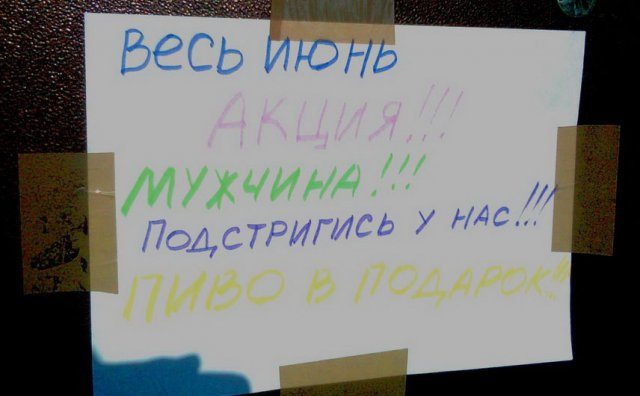 ВЕСЬ ИЮНЬ
АКЦИЯ!!!
МУЖЧИНА!!!
ПОДСТРИГИСЬ У НАС!!!
ПИВО В ПОДАРОК!!!